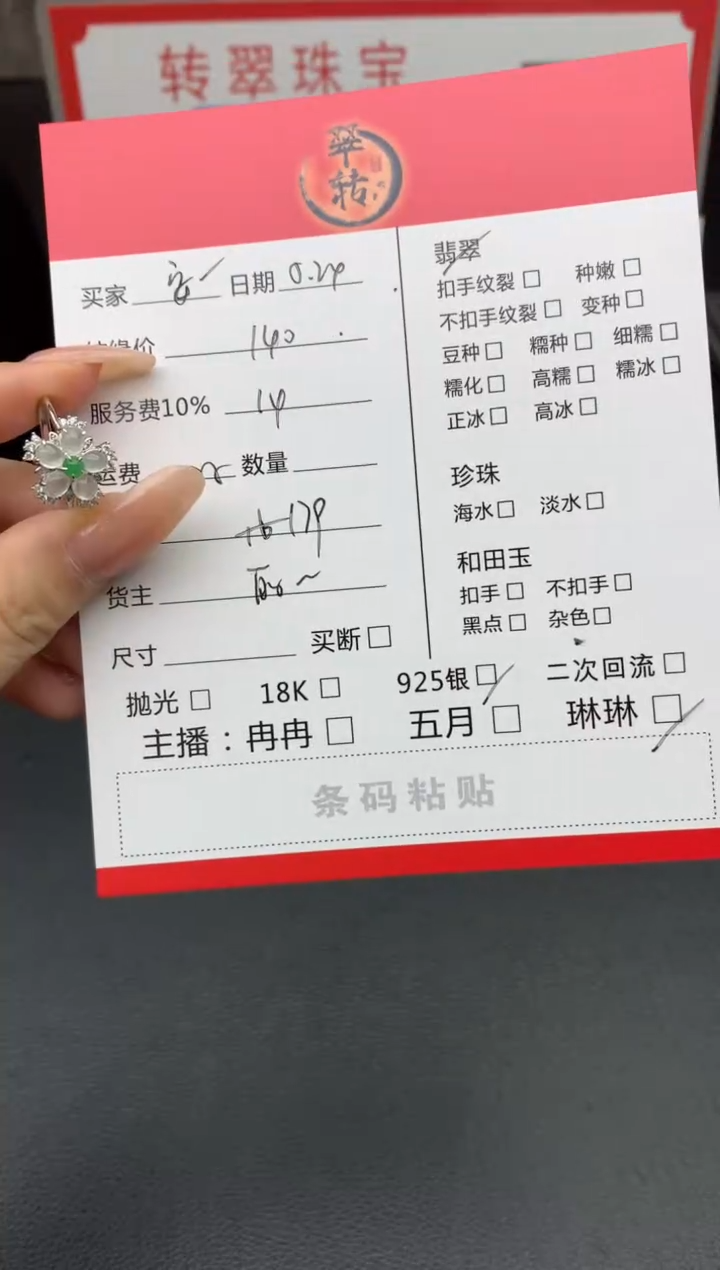 转翠珠宝
翠转
买家 日期
结缘价 140
服务费10% 14
运费 数量
179
货主
尺寸 买断
翡翠
扣手纹裂 种嫩
不扣手纹裂 变种
豆种 糯种 细糯
糯化 高糯 糯冰
正冰 高冰
珍珠
海水 淡水
和田玉
扣手 不扣手
黑点 杂色
抛光 18K 925银 二次回流
主播：冉冉 五月 琳琳
条码粘贴